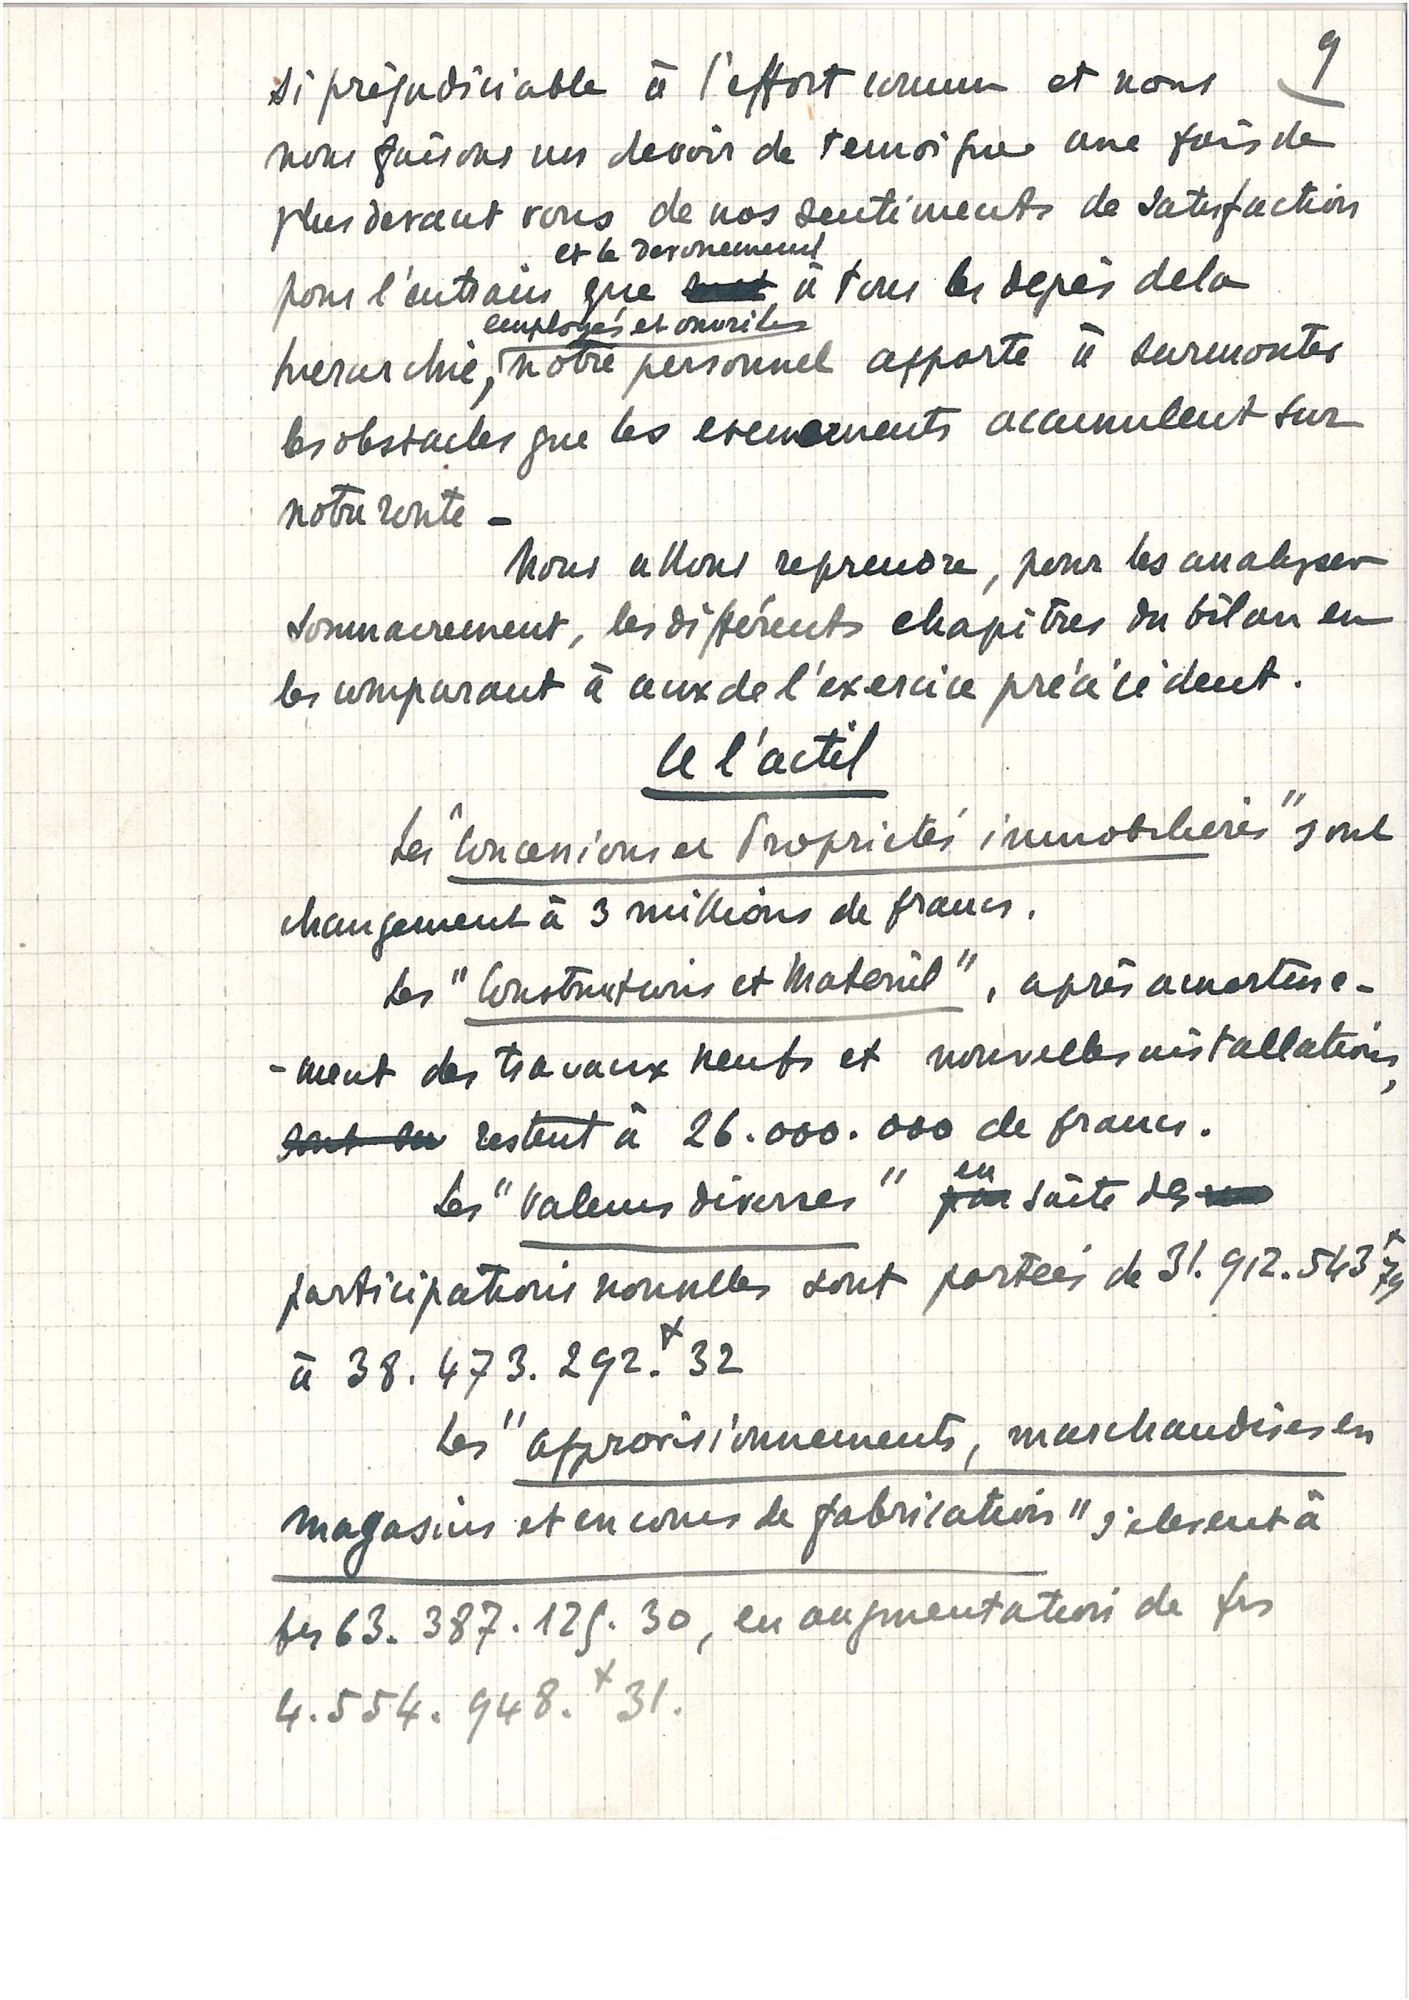 9
si préjudiciable à l'effort commun et nous
nous faisons un devoir de temoigner une fois de
plus devant vous de nos sentiments de satisfaction
et le devouement
pour l'entrain que à tous les degrés de la
employés et ouvriers
hierarchie, notre personnel apporte à surmonter
les obstacles que les evenements accumulent sur
notre route -
Nous allons reprendre, pour les analyser
sommairement, les différents chapitres du bilan en
les comparant à ceux de l'exercice précédent.
A l'actif
Les "Concessions et Propriétés immobilières" sont
changement à 3 millions de francs.
Les "Constructions et Materiel", après amortisse-
-ment des travaux neufs et nouvelles installations,
sont restent à 26.000.000 de francs.
en
Les "Valeurs diverses" par suite des
participations nouvelles sont portées de 31.912.543 f 79
à 38.473.292. f 32
Les "approvisionnements, marchandises en
magasins et en cours de fabrication" s'elevent à
frs 63.387.125.30, en augmentation de frs
4.554.948. f 31.